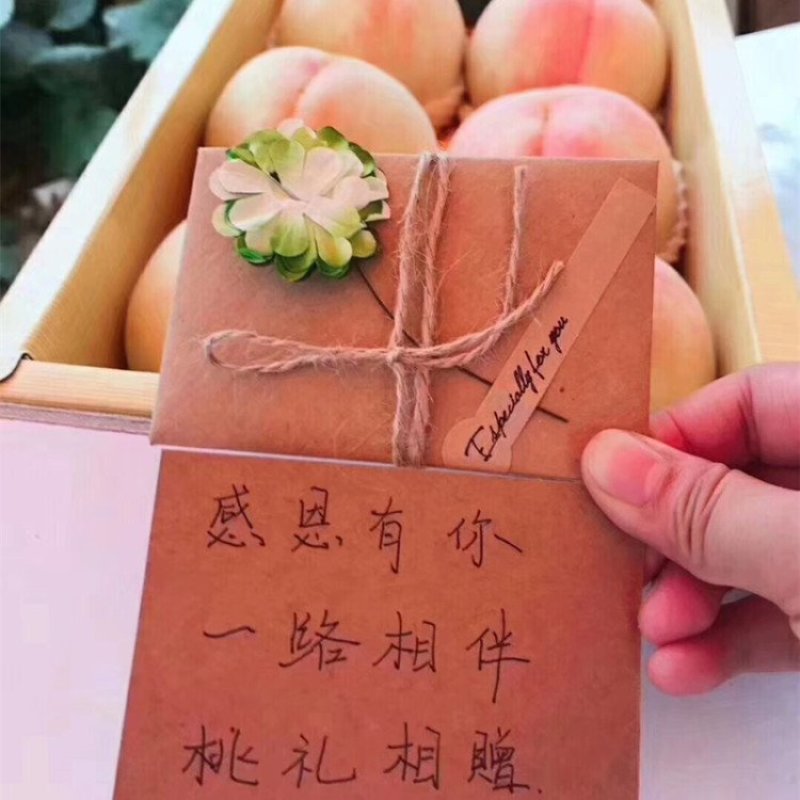 Especially for you
感恩有你
一路相伴
桃礼相赠.